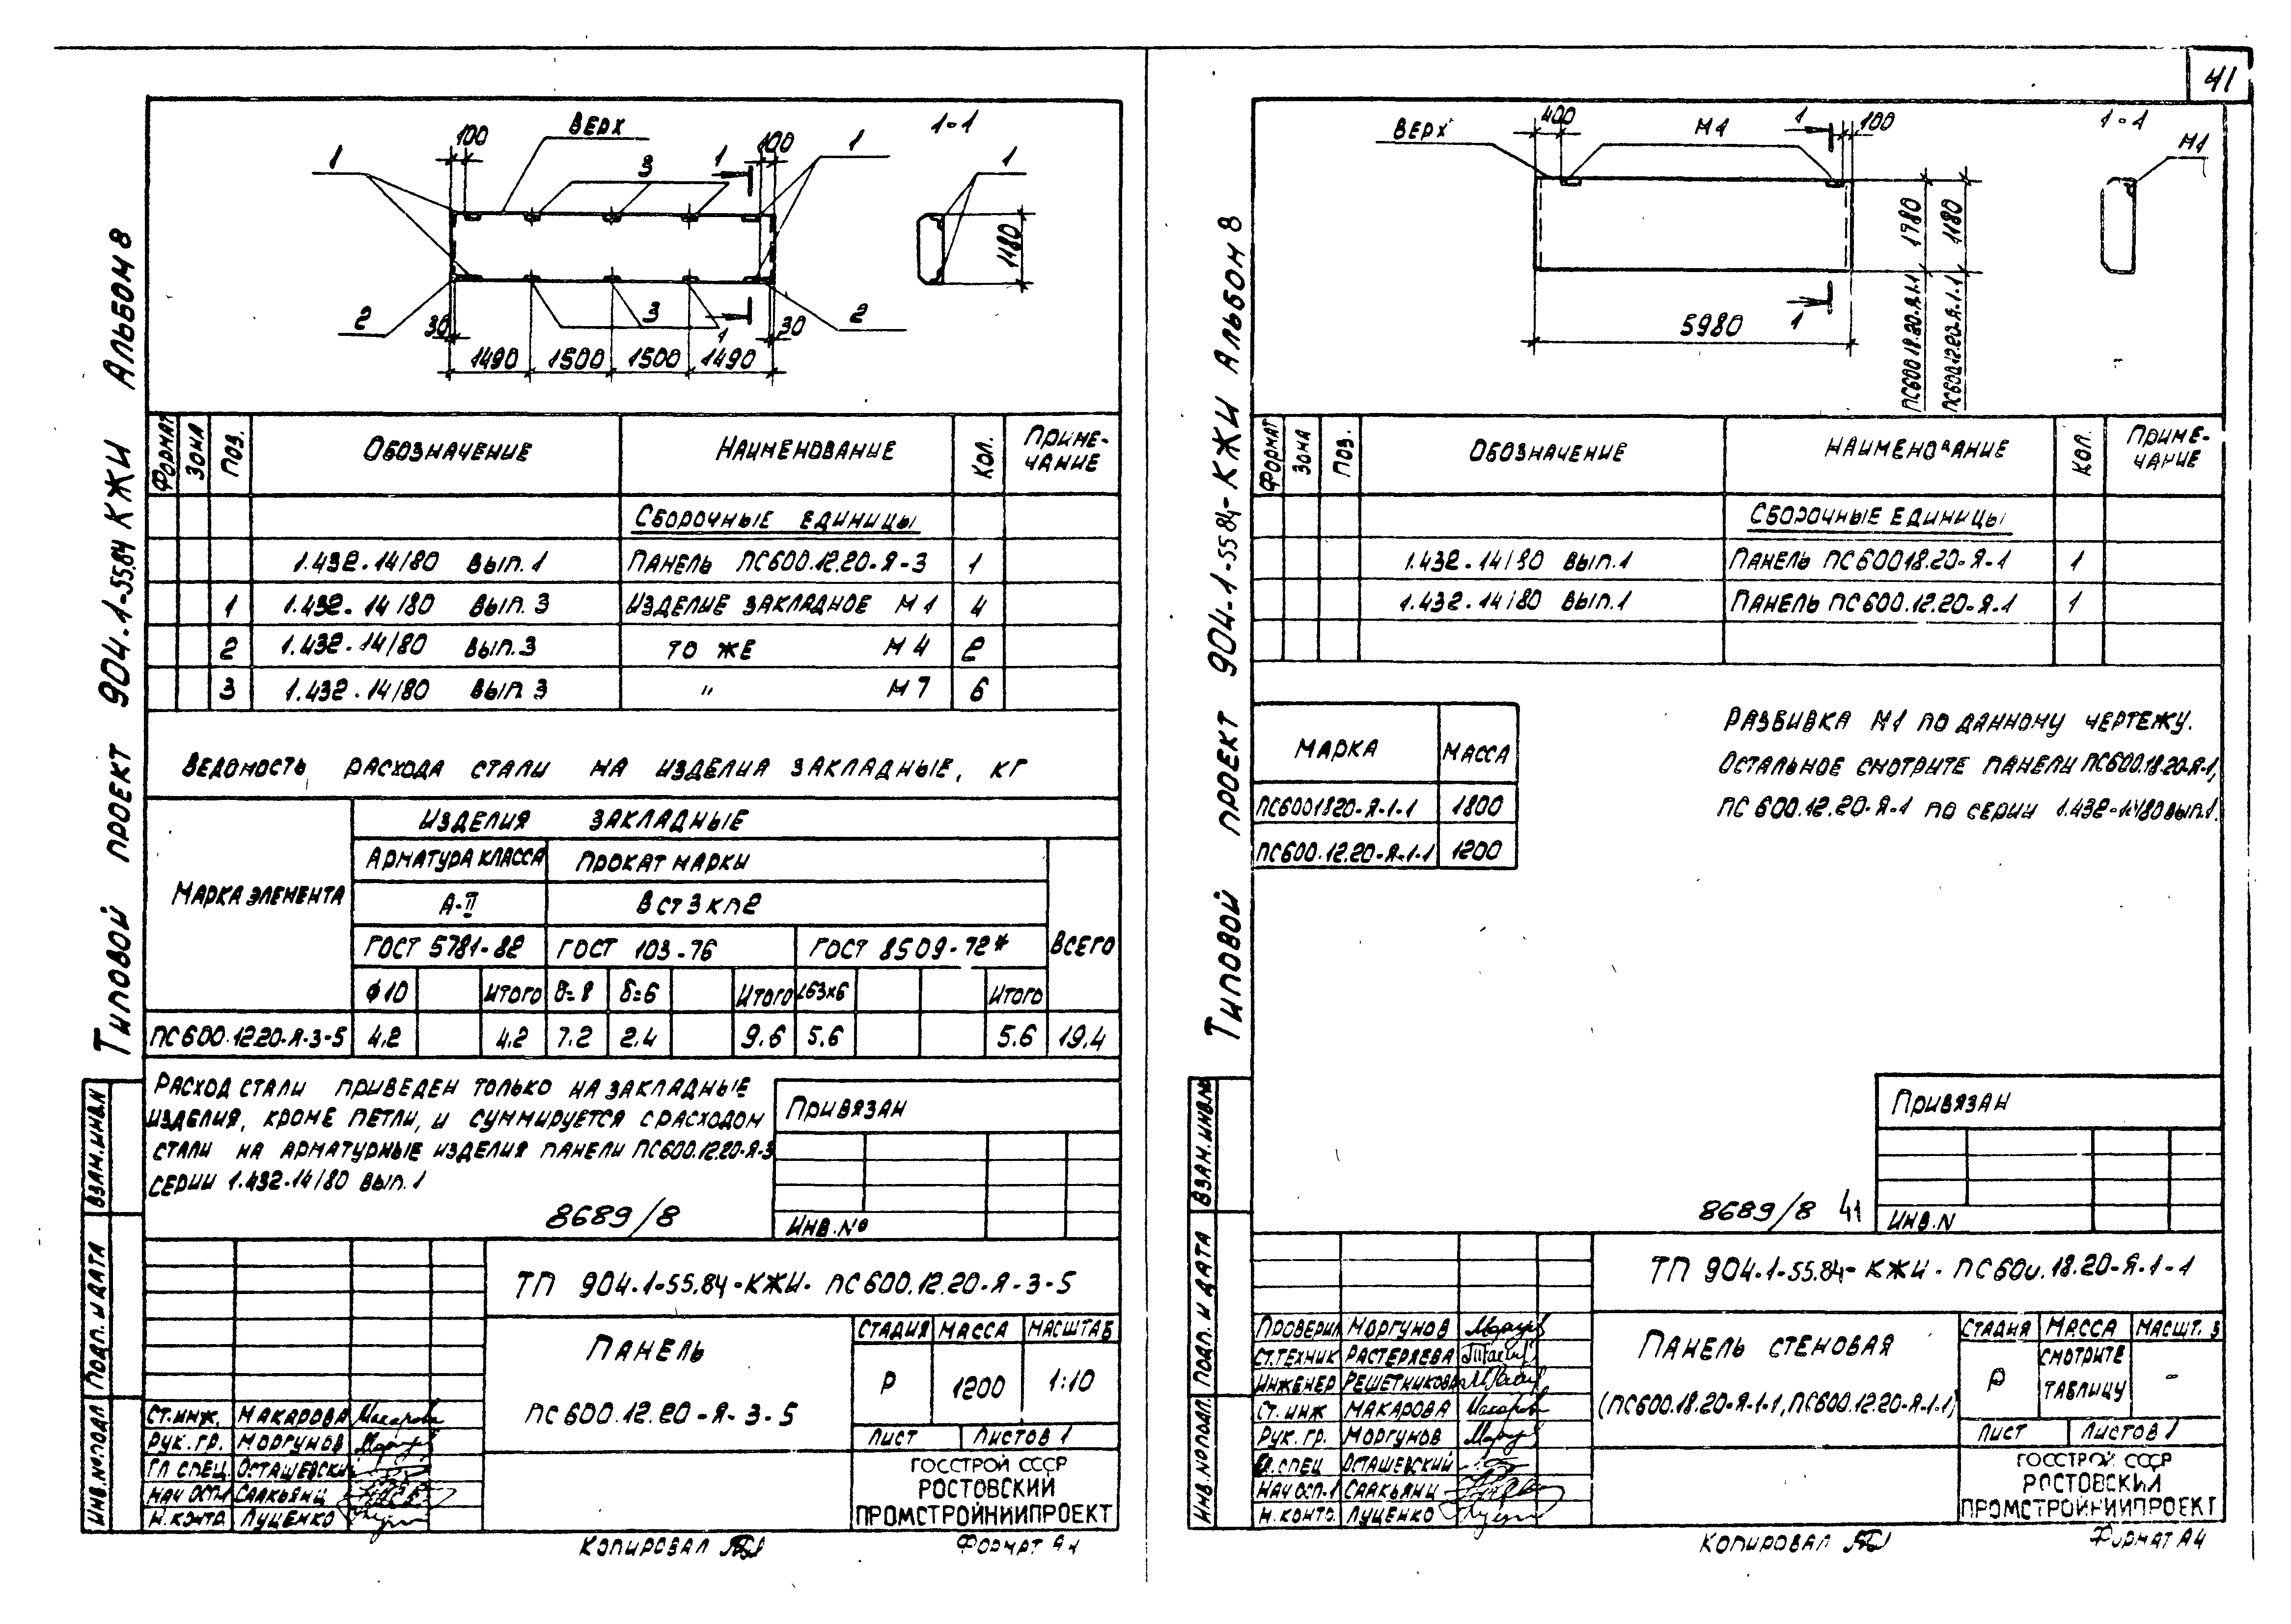 41
Типовой проект 904-1-55.84 КЖИ Альбом 8
100
ВЕРХ
1
100
1
1-1
1
3
1
1180
2
30
3
1
30
2
1490 1500 1500 1490
Формат
Зона
Поз.
Обозначение
Наименование
Кол.
Приме-
чание
Сборочные единицы
1.432-14/80 вып. 1 Панель ПС600.12.20-Я-3 1
1 1.432-14/80 вып. 3 Изделие закладное М1 4
2 1.432-14/80 вып. 3 то же М4 2
3 1.432-14/80 вып 3 " М7 6
Ведомость расхода стали на изделия закладные, кг
Марка элемента
Изделия закладные
Арматура класса Прокат марки
А-II В ст 3 кп2
ГОСТ 5781-82 ГОСТ 103-76 ГОСТ 8509-72* Всего
ϕ10 Итого δ=8 δ=6 Итого L63x6 Итого
ПС600.12.20-Я-3-5 4.2 4.2 7.2 2.4 9.6 5.6 5.6 19.4
Расход стали приведен только на закладные
изделия, кроме петли, и суммируется с расходом
стали на арматурные изделия панели ПС600.12.20-Я-3
серии 1.432-14/80 вып. 1
8689/8
Привязан
Инв. №
Взам. инв. №
Подп. и дата
Инв. № подл.
ТП 904-1-55.84-КЖИ- ПС600.12.20-Я-3-5
Панель
ПС600.12.20-Я-3-5
Стадия Масса Масштаб
Р 1200 1:10
Лист Листов 1
Ст. инж. Макарова
Рук. гр. Моргунов
Гл спец Осташевский
Нач осп-1 Саакьянц
Н. контр Луценко
ГОССТРОЙ СССР
РОСТОВСКИЙ
ПРОМСТРОЙНИИПРОЕКТ
Копировал
Формат А4
Типовой проект 904-1-55.84-КЖИ Альбом 8
ВЕРХ
400
М1
1
100
1-1
М1
1780
1180
ПС600.18.20-Я-1-1
ПС600.12.20-Я-1-1
5980
1
Формат
Зона
Поз.
Обозначение
Наименование
Кол.
Приме-
чание
Сборочные единицы
1.432-14/80 вып. 1 Панель ПС60018.20-Я-1 1
1.432-14/80 вып. 1 Панель ПС600.12.20-Я-1 1
Марка Масса
ПС6001820-Я-1-1 1800
ПС600.12.20-Я-1-1 1200
Разбивка М1 по данному чертежу.
Остальное смотрите панели ПС600.18.20-Я-1,
ПС 600.12.20-Я-1 по серии 1.432-14/80 вып. 1.
Привязан
8689/8 41
Инв. N
Взам. инв. №
Подп. и дата
Инв. № подл.
ТП 904-1-55.84- КЖИ- ПС600.18.20-Я-1-1
Панель стеновая
(ПС600.18.20-Я-1-1, ПС600.12.20-Я-1-1)
Стадия Масса Масшт.
Р смотрите таблицу -
Лист Листов 1
Проверил Моргунов
Ст. техник Растеряева
Инженер Решетникова
Ст. инж Макарова
Рук. гр. Моргунов
Гл. спец Осташевский
Нач осп-1 Саакьянц
Н. контр. Луценко
ГОССТРОЙ СССР
РОСТОВСКИЙ
ПРОМСТРОЙНИИПРОЕКТ
Копировал
Формат А4